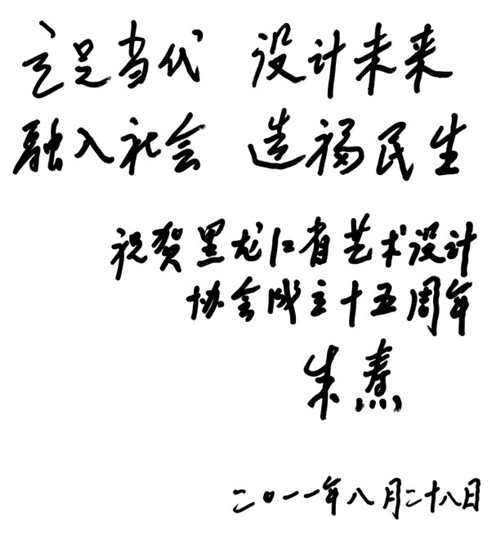 立足当代 设计未来
融入社会 造福民生
祝贺黑龙江省艺术设计
协会成立十五周年
朱焘
二〇一一年八月二十八日